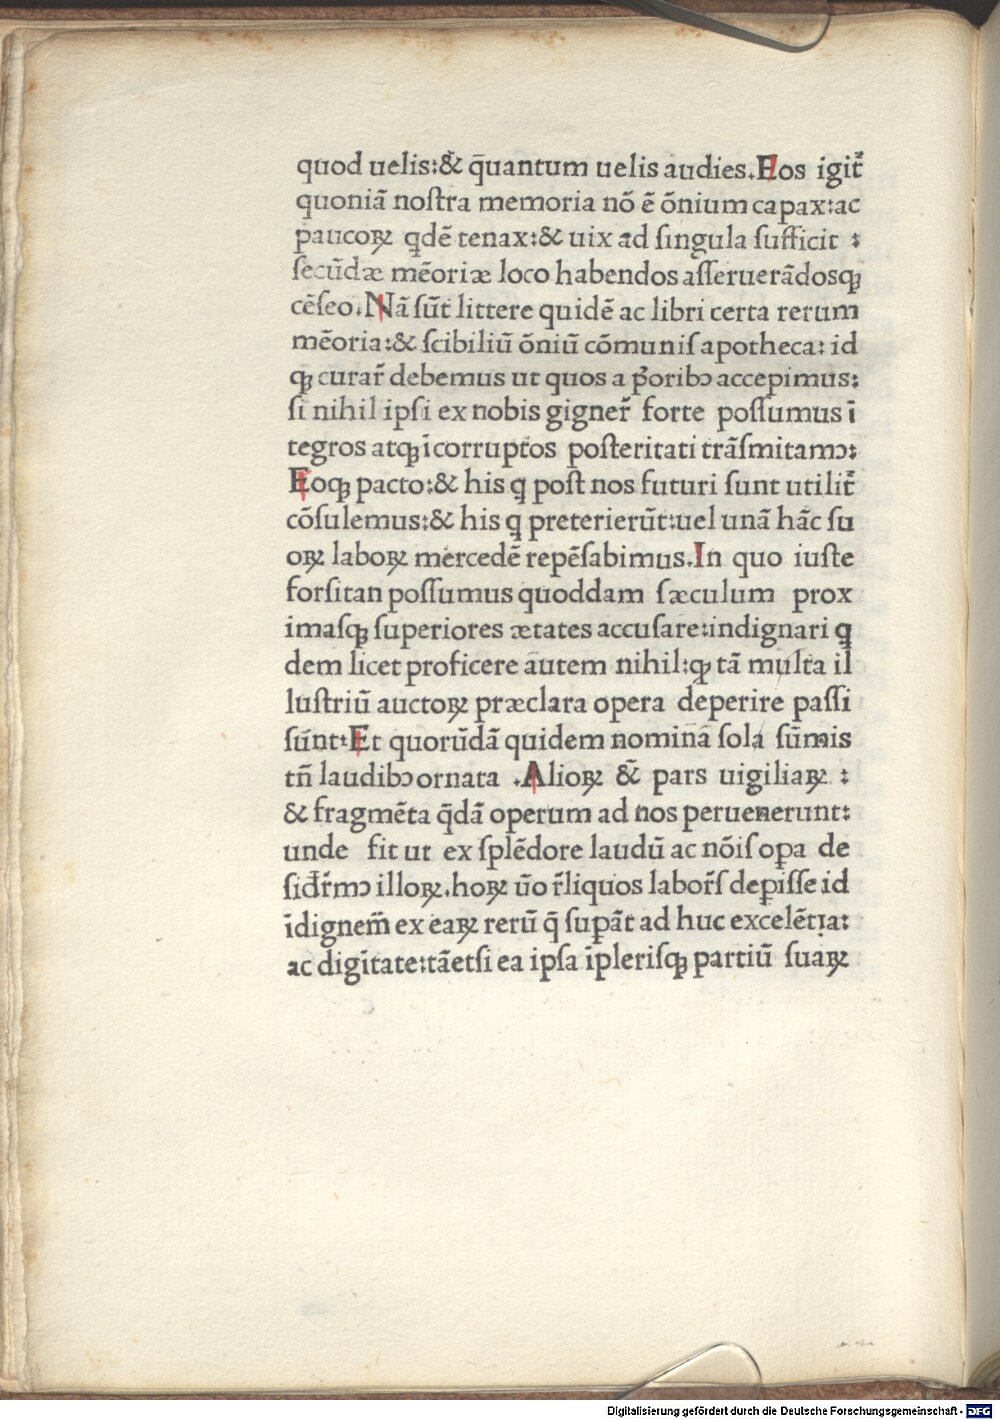 quod uelis:&̃ q̄uantum uelis audies.Eos igit᷑
quoniã nostra memoria nõ ẽ õnium capax:ac
paucoꝝ qdẽ tenax:& uix ad ſingula ſufficit :
ſecũdæ mẽoriæ loco habendos aſſeruerãdosqꝫ
cẽſeo.Nã ſũt littere quidẽ ac libri certa rerum
mẽoria:& ſcibiliũ õniũ cõmuniſ apotheca: id
qꝫ curar᷑ debemus ut quos a p̃oribꝯ accepimus:
ſi nihil ipſi ex nobis gigner᷑ forte poſſumus ī
tegros atqꝫ īcorruptos poſteritati trãſmitamꝯ:
Eoqꝫ pacto:& his ꝗ poſt nos futuri ſunt utilit᷑
cõſulemus:& his ꝗ preterierũt:uel unã hãc ſu
oꝝ laboꝝ mercedẽ repẽſabimus.In quo iuſte
forſitan poſſumus quoddam ſæculum prox
imaſqꝫ ſuperiores ætates accuſare:indignari ꝗ
dem licet proficere autem nihil:qꝫ tã multa il
luſtriũ auctoꝝ præclara opera deperire paſſi
ſũnt:Et quorũdã quidem nomina ſola ſũmis
tñ laudibꝯ ornata .Alioꝝ &̃ pars uigiliaꝝ :
& fragmẽta q̄dã operum ad nos peruenerunt:
unde fit ut ex ſplẽdore laudũ ac nõiſ oꝑa de
ſiđr᷑mꝯ illoꝝ.hoꝝ ũo r᷑liquos labor᷑ſ deꝑiſſe id
ĩdignem̃ ex eaꝝ rerũ q̄ ſuꝑãt ad huc excelẽtia:
ac digĩtate:tãetſi ea ipſa ĩpleriſqꝫ partiũ ſuaꝝ
Digitalisierung gefördert durch die Deutsche Forschungsgemeinschaft - DFG